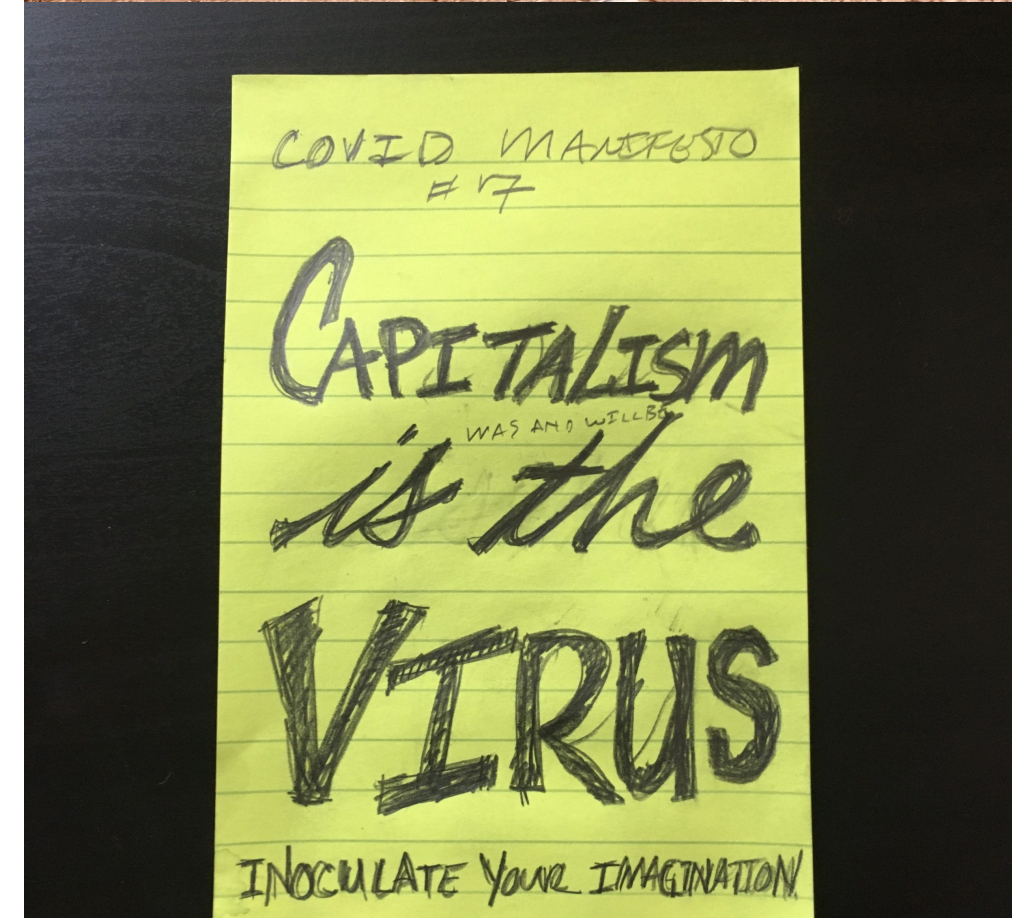 COVID MANIFESTO
#17
CAPITALISM
WAS AND WILL BE
is the
VIRUS
INOCULATE YOUR IMAGINATION